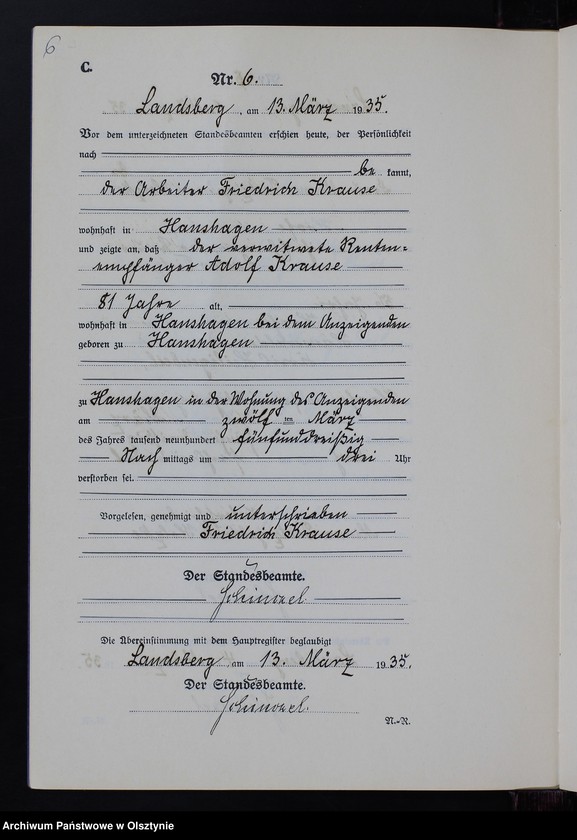 6
C.
Nr. 6.
Landsberg, am 13. März 1935.
Vor dem unterzeichneten Standesbeamten erschien heute, der Persönlichkeit
nach
be kannt,
der Arbeiter Friedrich Krause
wohnhaft in Hanshagen
und zeigte an, daß der verwitwete Renten=
empfänger Adolf Krause
81 Jahre alt,
wohnhaft in Hanshagen bei dem Anzeigenden
geboren zu Hanshagen
zu Hanshagen in der Wohnung des Anzeigenden
am zwölften März
des Jahres tausend neunhundert fünfunddreißig
Nach mittags um drei Uhr
verstorben sei.
Vorgelesen, genehmigt und unterschrieben
Friedrich Krause
Der Standesbeamte.
Die Übereinstimmung mit dem Hauptregister beglaubigt
Landsberg, am 13. März 1935.
Der Standesbeamte.
N.-R.
Archiwum Państwowe w Olsztynie